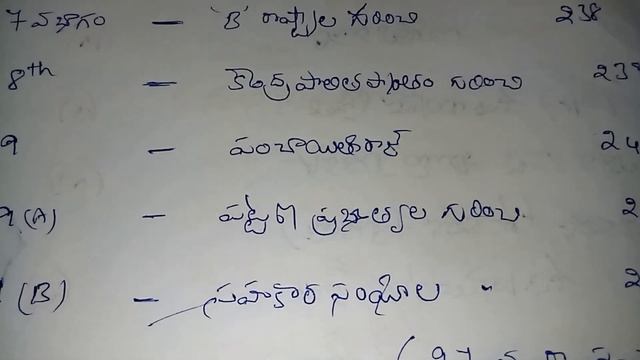 7 వ భాగం — 'B' రాష్ట్రాల గురించి 238
8th — కేంద్రపాలిత ప్రాంతం గురించి 239
9 — పంచాయితీరాజ్ 24
9 (A) — పట్టణ ప్రభుత్వాల గురించి 2
(B) — సహకార సంఘాల " 2